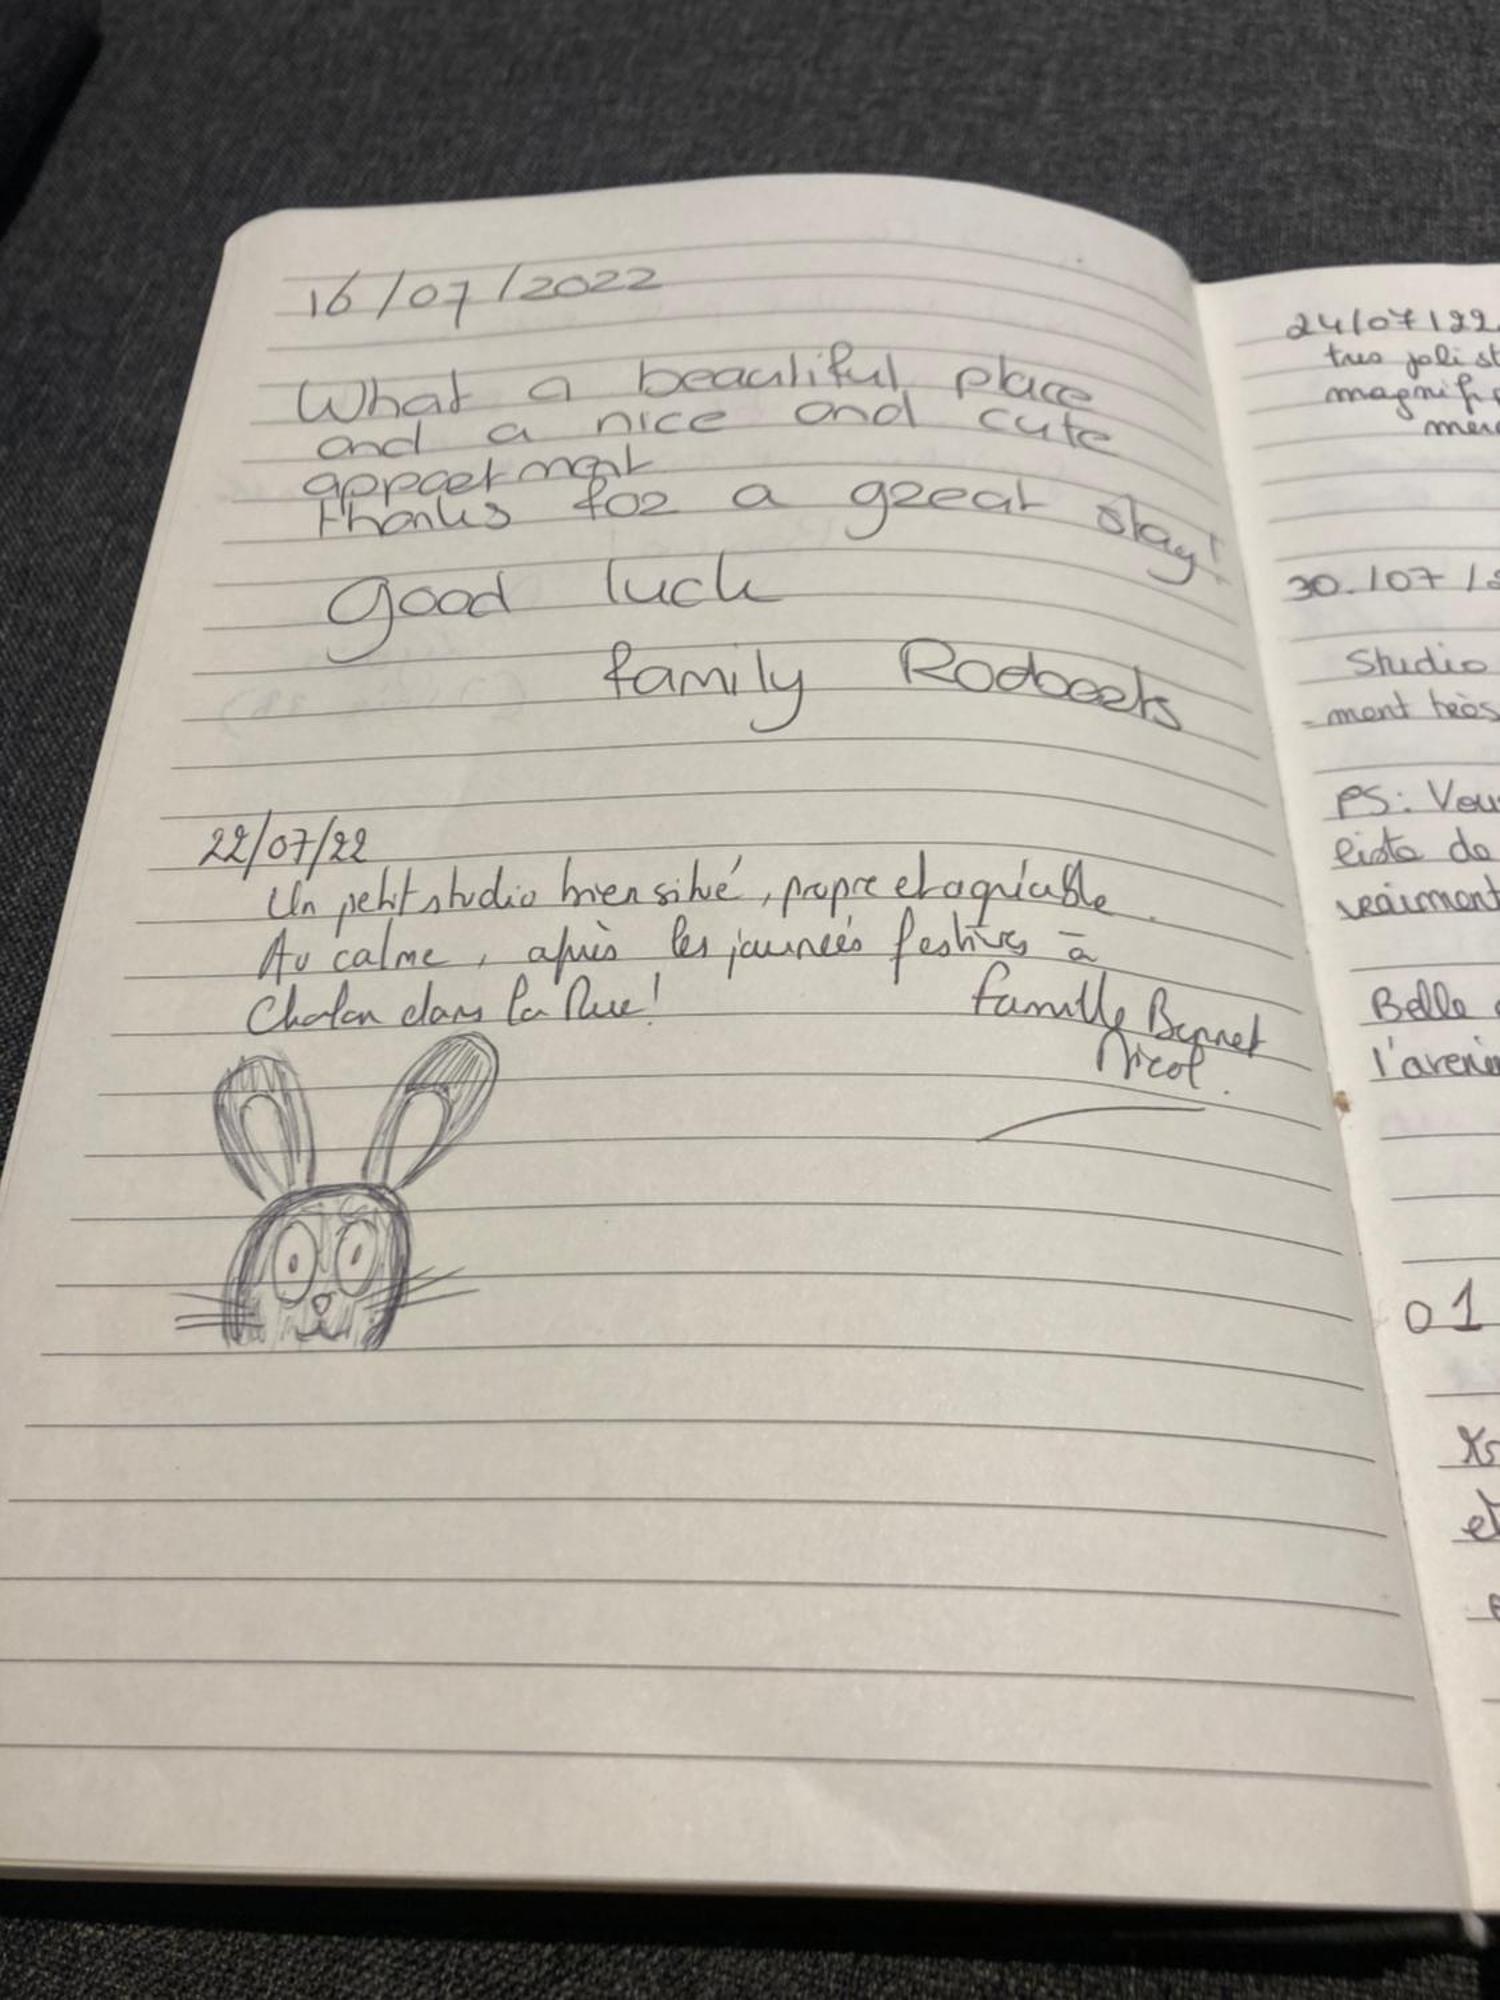 16/07/2022
What a beautiful place
and a nice and cute
appaetment
thanks for a great stay!
good luck
family Rodoets
22/07/22
Un petit studio bien situé, propre et agréable.
Au calme, après les journées festives à
Chalon dans la Rue!
famille Bonnet
Nicol.
24/07/22
tres joli st
magnifi
merc
30./07/2
Studio
-ment très
PS: Vous
liste de
vraiment
Belle
l'avenir
01
et